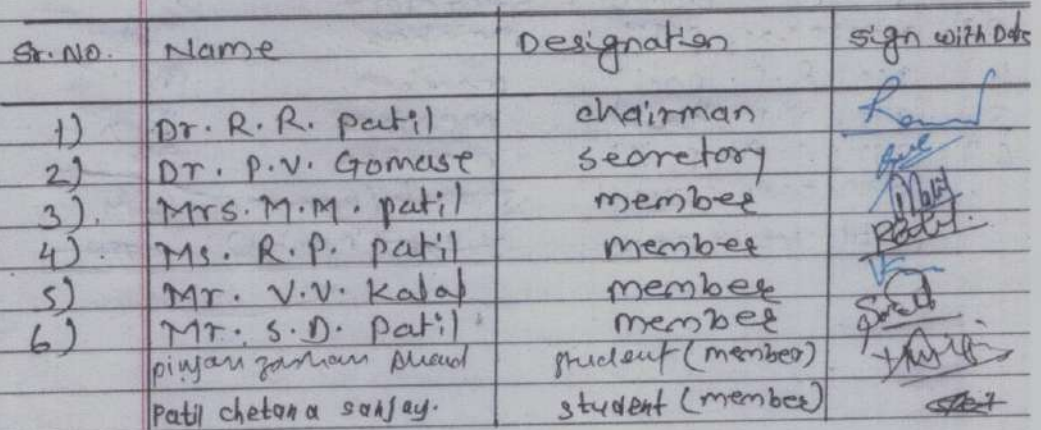 Sr. No. Name Designation sign with Date
1) Dr. R. R. Patil chairman
2) Dr. P. V. Gomase secretory
3). Mrs. M. M. patil member
4). Ms. R. P. Patil member
5) Mr. V. V. Kalap member
6) Mr. S. D. Patil member
pinjari student (member)
Patil chetana sanjay. student (member)